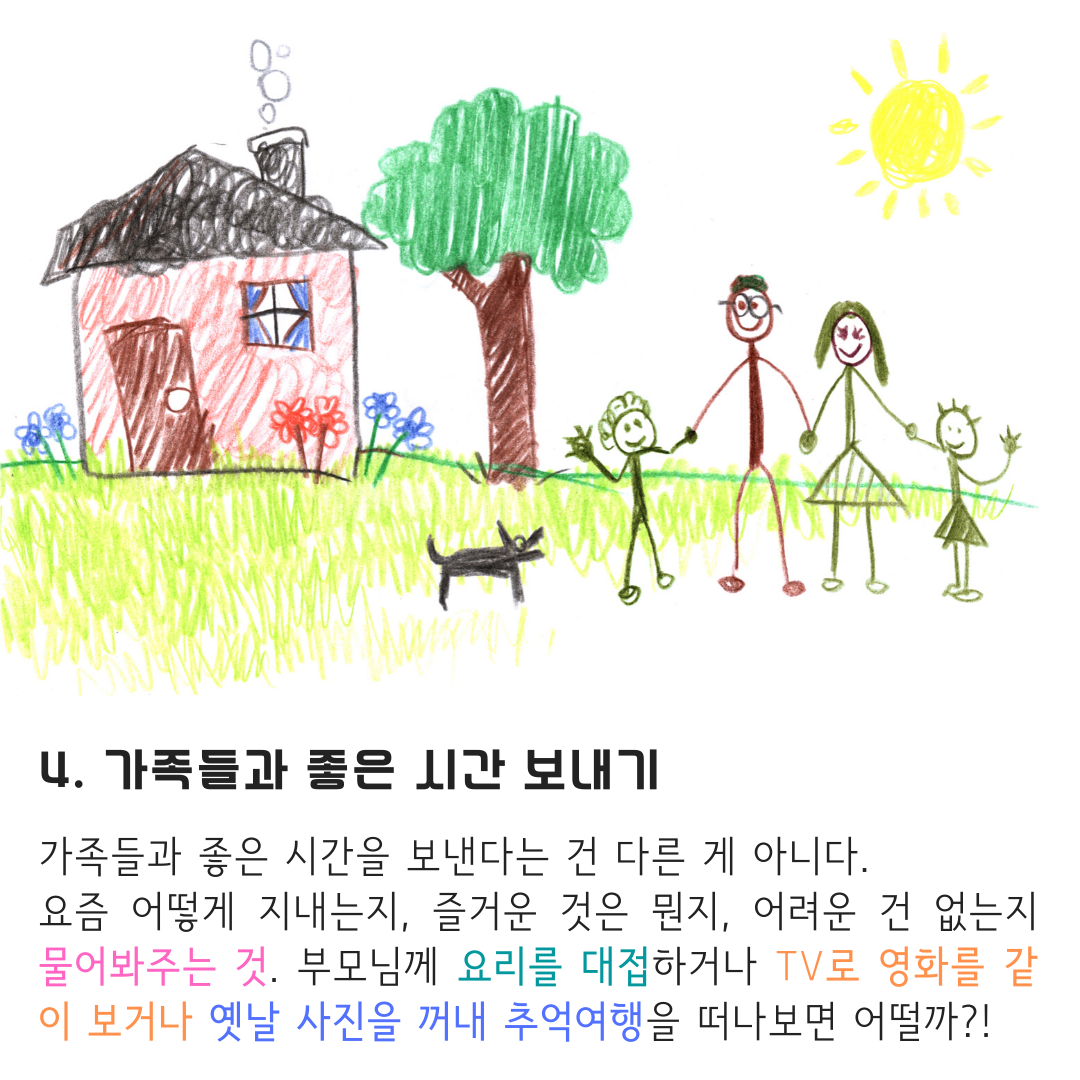 4. 가족들과 좋은 시간 보내기
가족들과 좋은 시간을 보낸다는 건 다른 게 아니다.
요즘 어떻게 지내는지, 즐거운 것은 뭔지, 어려운 건 없는지
물어봐주는 것. 부모님께 요리를 대접하거나 TV로 영화를 같
이 보거나 옛날 사진을 꺼내 추억여행을 떠나보면 어떨까?!